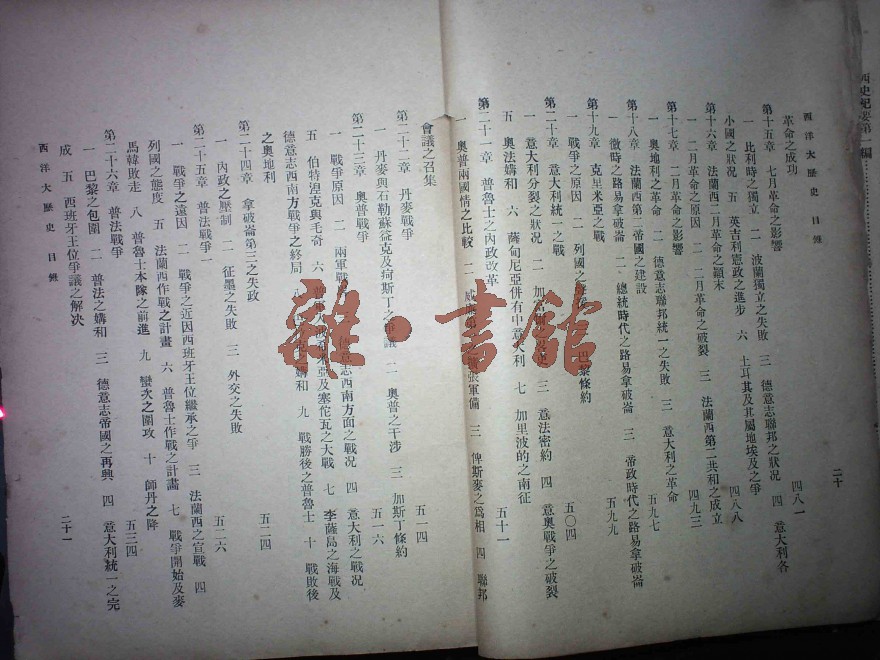 西史紀要第二編
西洋大歷史 目錄
二十
革命之成功
四八一
第十五章 七月革命之影響
一 比利時之獨立 二 波蘭獨立之失敗 三 德意志聯邦之狀況 四 意大利各
小國之狀況 五 英吉利憲政之進步 六 土耳其及其屬地埃及之爭
四八八
第十六章 法蘭西二月革命之顛末
一 二月革命之原因 二 二月革命之破裂 三 法蘭西第二共和之成立
四九三
第十七章 二月革命之影響
一 奧地利之革命 二 德意志聯邦統一之失敗 三 意大利之革命
五九七
第十八章 法蘭西第二帝國之建設
一 微時之路易拿破崙 二 總統時代之路易拿破崙 三 帝政時代之路易拿破崙
五九九
第十九章 克里米亞之戰
一 戰爭之原因 二 列國之 巴黎條約
五〇四
第二十章 意大利統一之戰
一 意大利分裂之狀況 二 加 三 意法密約 四 意奧戰爭之破裂
五 奧法媾和 六 薩甸尼亞併有中意大利 七 加里波的之南征
五十一
第二十一章 普魯士之內政改革
一 奧普兩國情之比較 二 威 張軍備 三 俾斯麥之爲相 四 聯邦
會議之召集
五一四
第二十二章 丹麥戰爭
一 丹麥與石勒蘇益克及荷斯丁之爭議 二 奧普之干涉 三 加斯丁條約
五一六
第二十三章 奧普戰爭
一 戰爭原因 二 兩軍戰 德意志西南方面之戰況 四 意大利之戰況
五 伯特涅克與毛奇 六 普軍入 亞及塞佗瓦之大戰 七 李薩島之海戰及
德意志西南方戰爭之終局 八 媾和 九 戰勝後之普魯士 十 戰敗後
之奧地利
五二四
第二十四章 拿破崙第三之失政
一 內政之壓制 二 征墨之失敗 三 外交之失敗
五二六
第二十五章 普法戰爭一
一 戰爭之遠因 二 戰爭之近因西班牙王位繼承之爭 三 法蘭西之宣戰 四
列國之態度 五 法蘭西作戰之計畫 六 普魯士作戰之計畫 七 戰爭開始及麥
馬韓敗走 八 普魯士本隊之前進 九 蠻次之圍攻 十 師丹之降
五三四
第二十六章 普法戰爭
一 巴黎之包圍 二 普法之媾和 三 德意志帝國之再興 四 意大利統一之完
成 五 西班牙王位爭議之解決
西洋大歷史 目錄
二十一
雜·書館